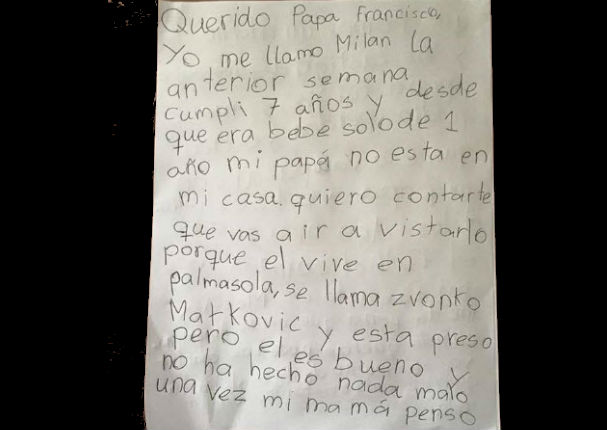 Querido Papa Francisco,
Yo me llamo Milan la
anterior semana
cumpli 7 años y desde
que era bebe solo de 1
año mi papá no esta en
mi casa. quiero contarte
que vas a ir a vistarlo
porque el vive en
palmasola, se llama zvonko
Matkovic y esta preso
pero el es bueno y
no ha hecho nada malo
una vez mi mamá penso